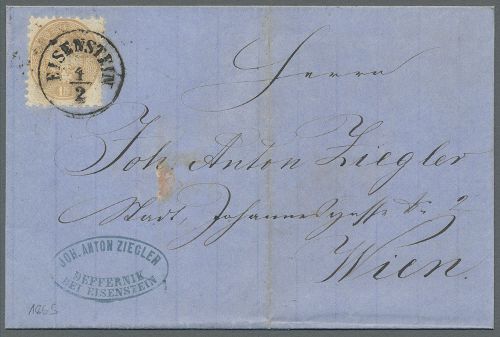 EISENSTEIN
1/2
Herrn
Joh Anton Ziegler
Stadt, Johannesgasse No 2
Wien.
JOH. ANTON ZIEGLER
DEFFERNIK
BEI EISENSTEIN
1865